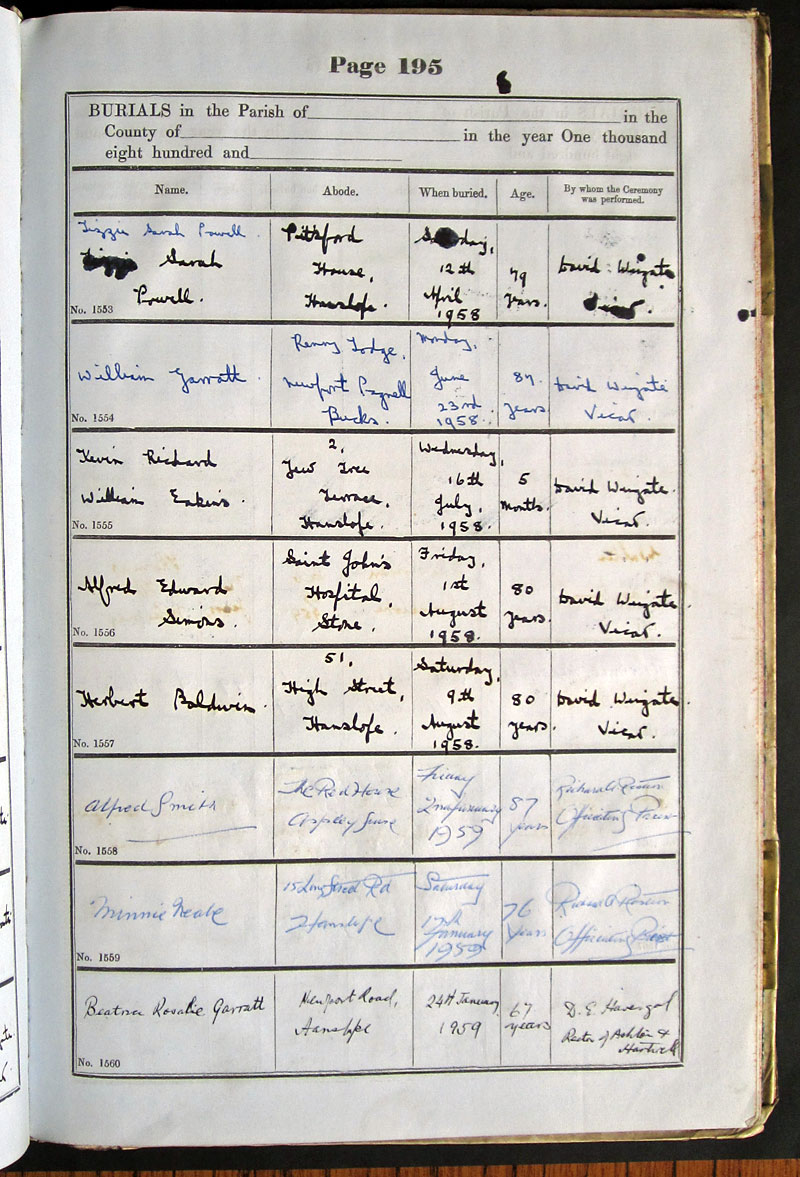 Page 195
BURIALS in the Parish of in the
County of in the year One thousand
eight hundred and
Name. Abode. When buried. Age. By whom the Ceremony was performed.
Lizzie Sarah Powell.
Sarah
Powell.
No. 1553
Pittsford
House,
Hanslope.
12th
April
1958
79
years.
David Wingate
Vicar.
William Garratt.
No. 1554
Renny Lodge,
Newport Pagnell
Bucks.
Monday,
June
23rd
1958.
87
years
David Wingate
Vicar.
Kevin Richard
William Eakins.
No. 1555
2,
Yew Tree
Terrace,
Hanslope.
Wednesday,
16th
July,
1958.
5
Months.
David Wingate.
Vicar.
Alfred Edward
Simons.
No. 1556
Saint John's
Hospital,
Stone.
Friday,
1st
August
1958.
80
years.
David Wingate.
Vicar.
Herbert Baldwin.
No. 1557
51,
High Street,
Hanslope.
Saturday,
9th
August
1958.
80
years.
David Wingate
Vicar.
Alfred Smith
No. 1558
The Red House
Aspley Guise
Friday
2nd January
1959
87
years
Officiating Priest
Minnie Neale
No. 1559
15 Long Street Rd
Hanslope
Saturday
17th
January
1959
76
Years
Officiating Priest
Beatrice Rosalie Garratt
No. 1560
Newport Road,
Hanslope
24th January
1959
67
years
D. E. Havergal
Rector of Ashton &
Hartwell